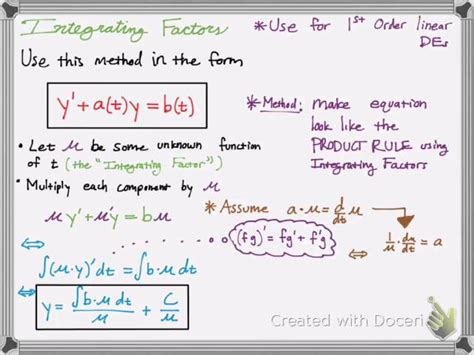 Integrating Factors
* Use for 1st Order linear
DEs
Use this method in the form
y' + a(t)y = b(t)
* Method: make equation
look like the
PRODUCT RULE using
Integrating Factors
• Let μ be some unknown function
of t (the "Integrating Factor")
• Multiply each component by μ
μy' + μ'y = bμ
* Assume a·μ = d/dt μ
(fg)' = fg' + f'g
1/μ · dμ/dt = a
⇔ ∫(μ·y)'dt = ∫b·μ dt
⇔ y = ∫b·μ dt / μ + C/μ
Created with Doceri